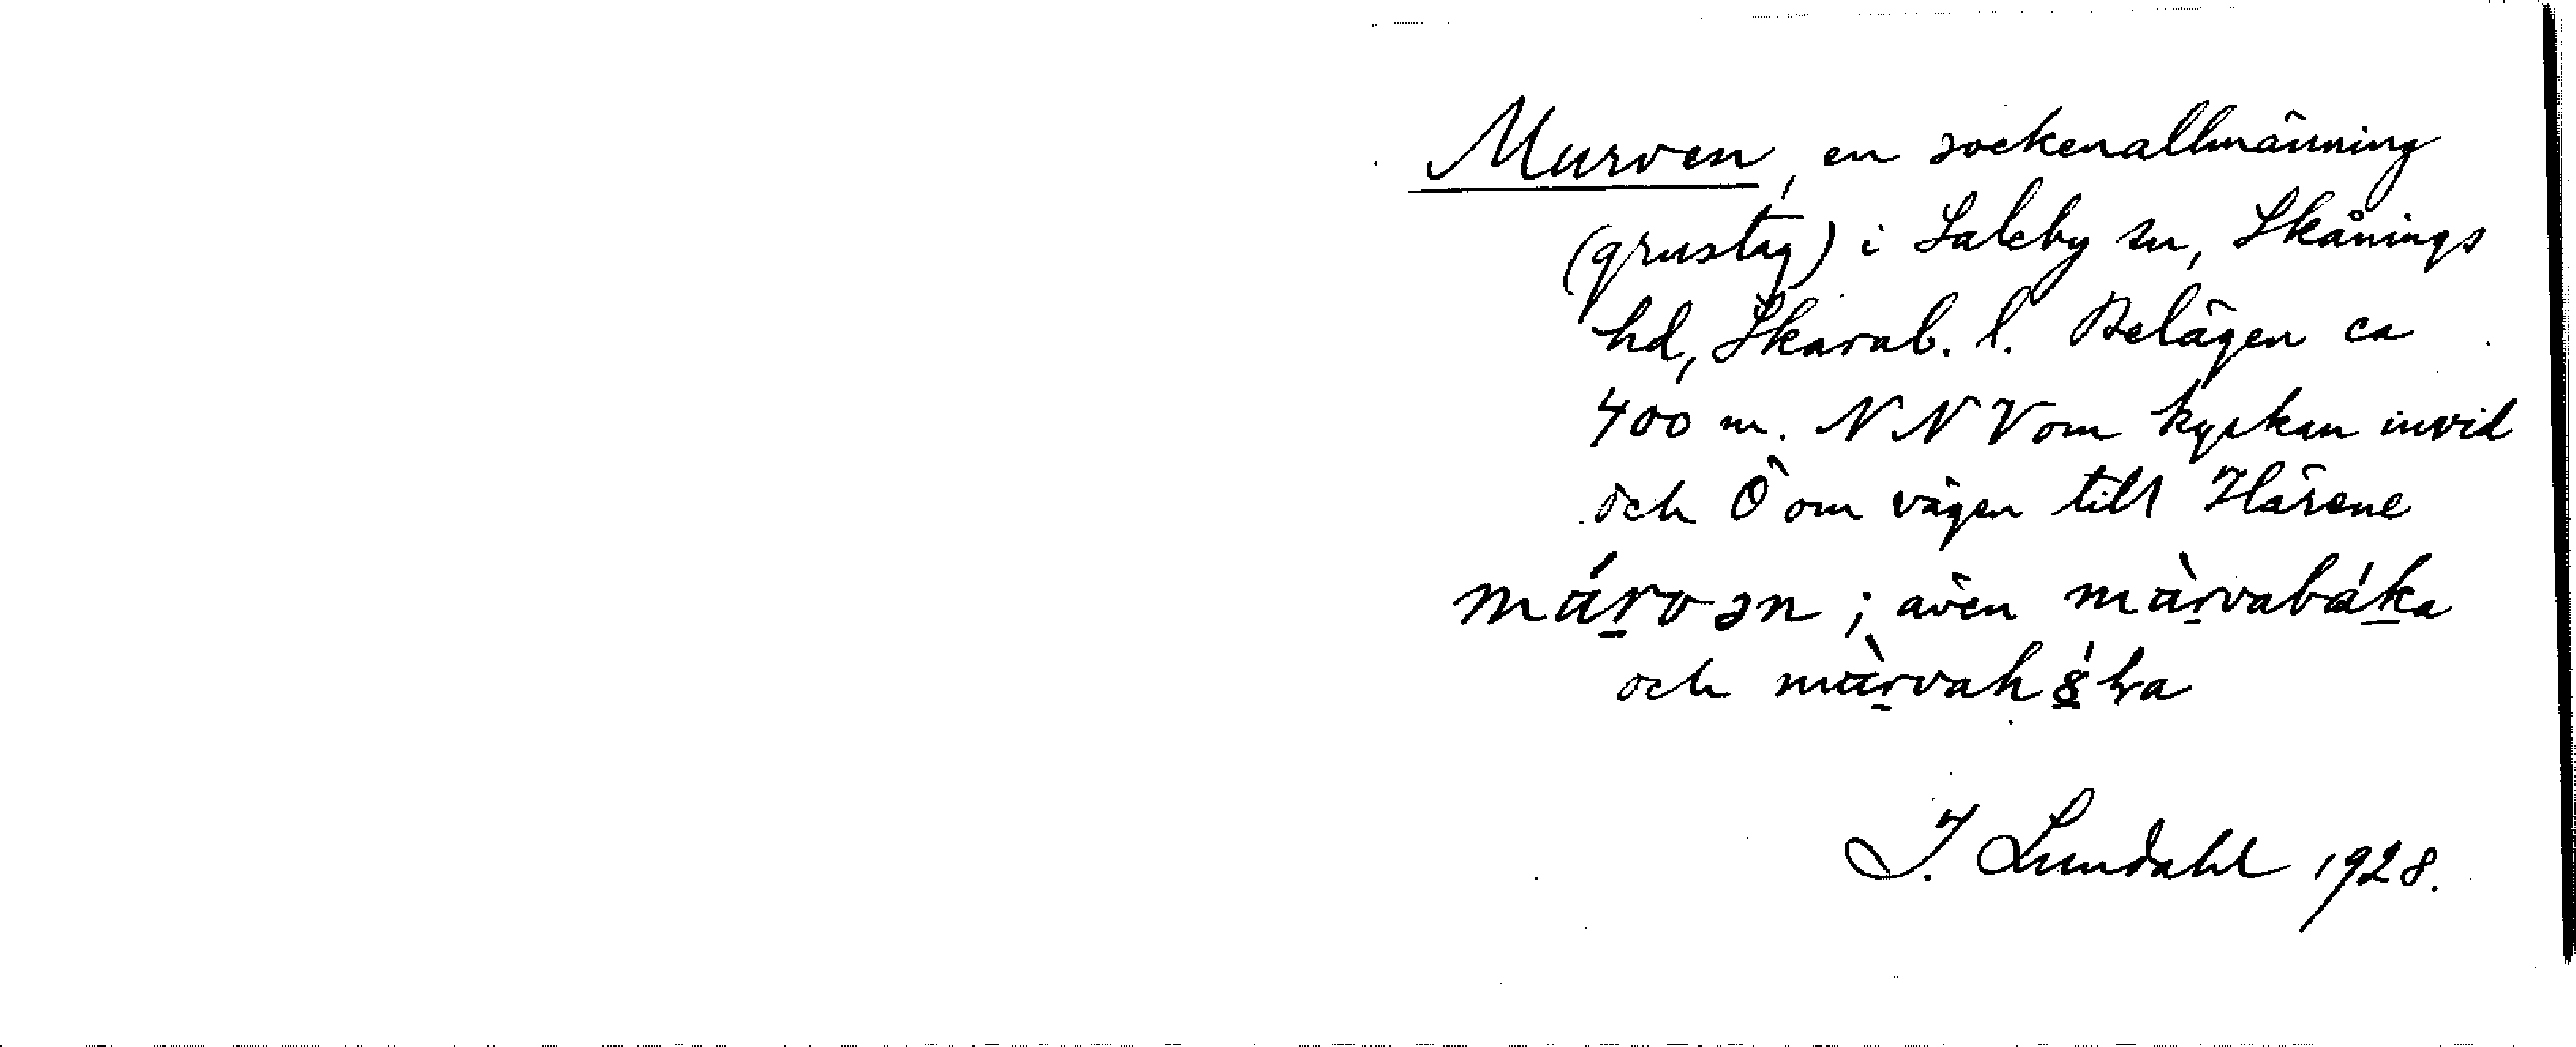 Murven, en sockenallmänning
(grustag) i Saleby sn, Skånings
hd, Skarab. l. Belägen ca
400 m. NNV om kyrkan invid
och Ö om vägen till Härene
márvən; även màrvabáka
och màrvah
J. Lundahl 1928.